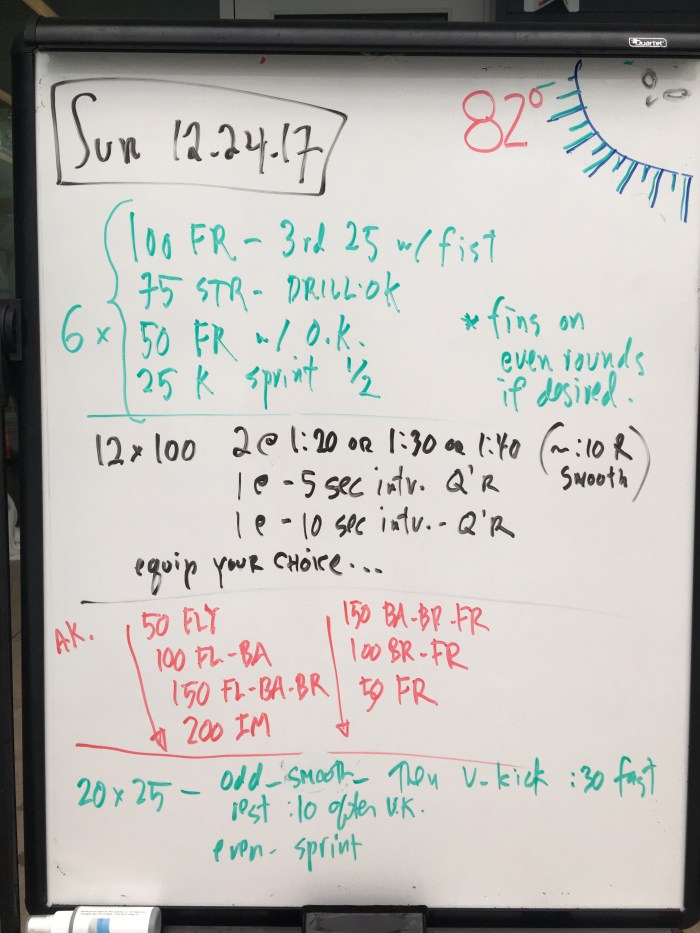 Quartet
Sun 12.24.17
82°
6 x
100 FR - 3rd 25 w/ fist
75 STR - DRILL·OK
50 FR w/ O.K.
25 K sprint 1/2
* fins on
even rounds
if desired.
12 x 100 2 @ 1:20 or 1:30 or 1:40 (~:10 R
smooth)
1 @ -5 sec intv. Q'R
1 @ -10 sec intv. - Q'R
equip your choice...
A.K.
50 FLY
100 FL-BA
150 FL-BA-BR
200 IM
150 BA-BR-FR
100 BR-FR
50 FR
20 x 25 - odd - smooth - then V-kick :30 fast
rest :10 after V.K.
even - sprint